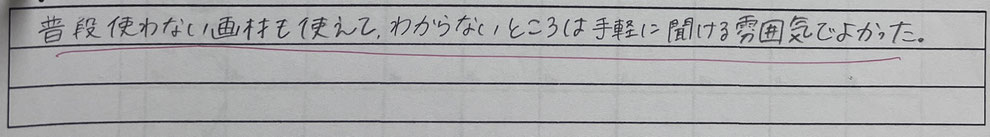 普段使わない画材も使えて、わからないところは手軽に聞ける雰囲気でよかった。